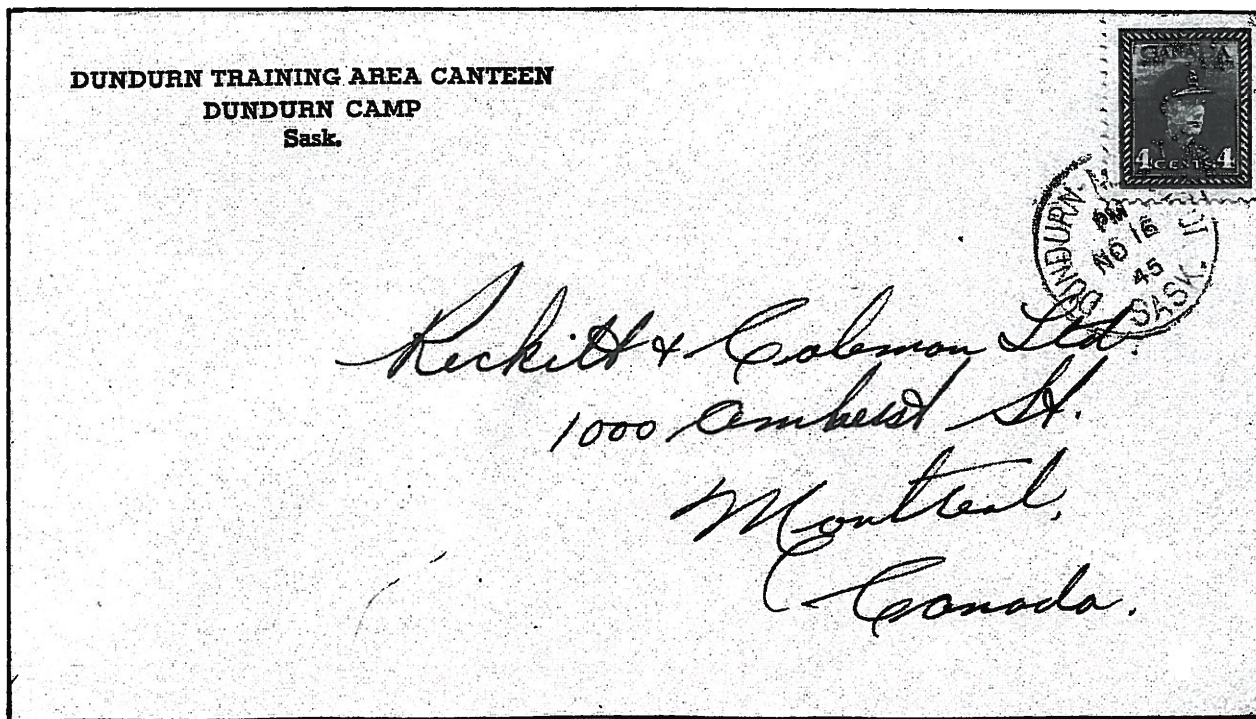 DUNDURN TRAINING AREA CANTEEN
DUNDURN CAMP
Sask.
CANADA
4 CENTS 4
DUNDURN-M
PM
NO 16
45
SASK.
Reckitt & Coleman Ltd.
1000 Amherst St.
Montreal,
Canada.